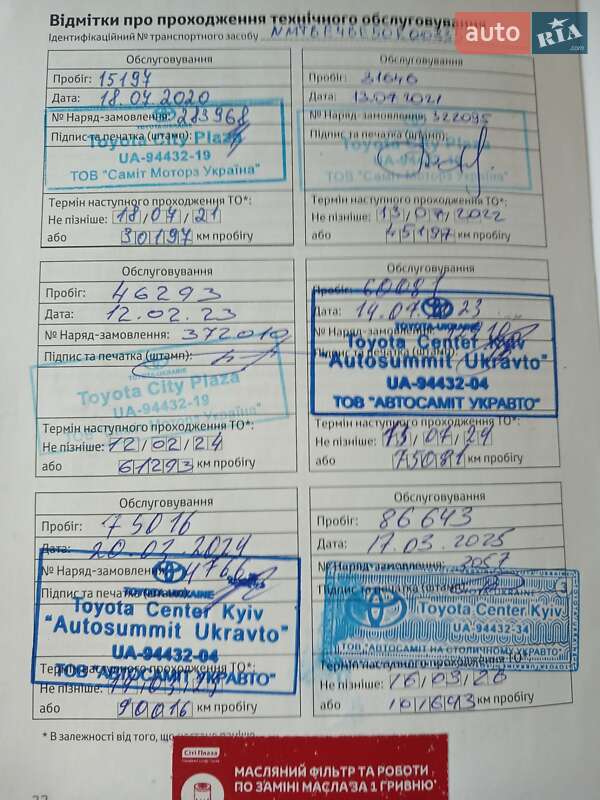 Відмітки про проходження технічного обслуговування
Ідентифікаційний № транспортного засобу
auto RIA.com
Обслуговування
Пробіг: 15197
Дата: 18.07.2020
№ Наряд-замовлення: 283968
Підпис та печатка (штамп):
Toyota City Plaza
UA-94432-19
ТОВ "Саміт Моторз Україна"
Термін наступного проходження ТО*:
Не пізніше: 18/07/21
або 30197 км пробігу
Обслуговування
Пробіг: 31646
Дата: 13.07.2021
№ Наряд-замовлення: 322095
Підпис та печатка (штамп):
ТОВ "Саміт Моторз Україна"
Термін наступного проходження ТО*:
Не пізніше: 13/07/2022
або 45197 км пробігу
Обслуговування
Пробіг: 46293
Дата: 12.02.23
№ Наряд-замовлення: 372010
Підпис та печатка (штамп):
TOYOTA-UKRAINE
Toyota City Plaza
UA-94432-19
Термін наступного проходження ТО*:
Не пізніше: 12/02/24
або 61293 км пробігу
Обслуговування
Пробіг: 60081
Дата: 14.07.23
№ Наряд-замовлення:
TOYOTA-UKRAINE
Підпис та печатка (штамп):
Toyota Center Kyiv
"Autosummit Ukravto"
UA-94432-04
ТОВ "АВТОСАМІТ УКРАВТО"
Термін наступного проходження ТО*:
Не пізніше: 13/07/24
або 75081 км пробігу
Обслуговування
Пробіг: 75016
Дата: 20.03.2024
№ Наряд-замовлення:
Підпис та печатка (штамп):
TOYOTA-UKRAINE
Toyota Center Kyiv
"Autosummit Ukravto"
UA-94432-04
ТОВ "АВТОСАМІТ УКРАВТО"
Термін наступного проходження ТО*:
Не пізніше:
або 90016 км пробігу
Обслуговування
Пробіг: 86643
Дата: 17.03.2025
№ Наряд-замовлення: 3057
Підпис та печатка (штамп):
Toyota Center Kyiv
UA-94432-34
ТОВ "АВТОСАМІТ НА СТОЛИЧНОМУ УКРАВТО"
Термін наступного проходження ТО*:
Не пізніше: 16/03/26
або 101643 км пробігу
* В залежності від того, що
Сіті Плаза
МАСЛЯНИЙ ФІЛЬТР ТА РОБОТИ
ПО ЗАМІНІ МАСЛА ЗА 1 ГРИВНЮ*